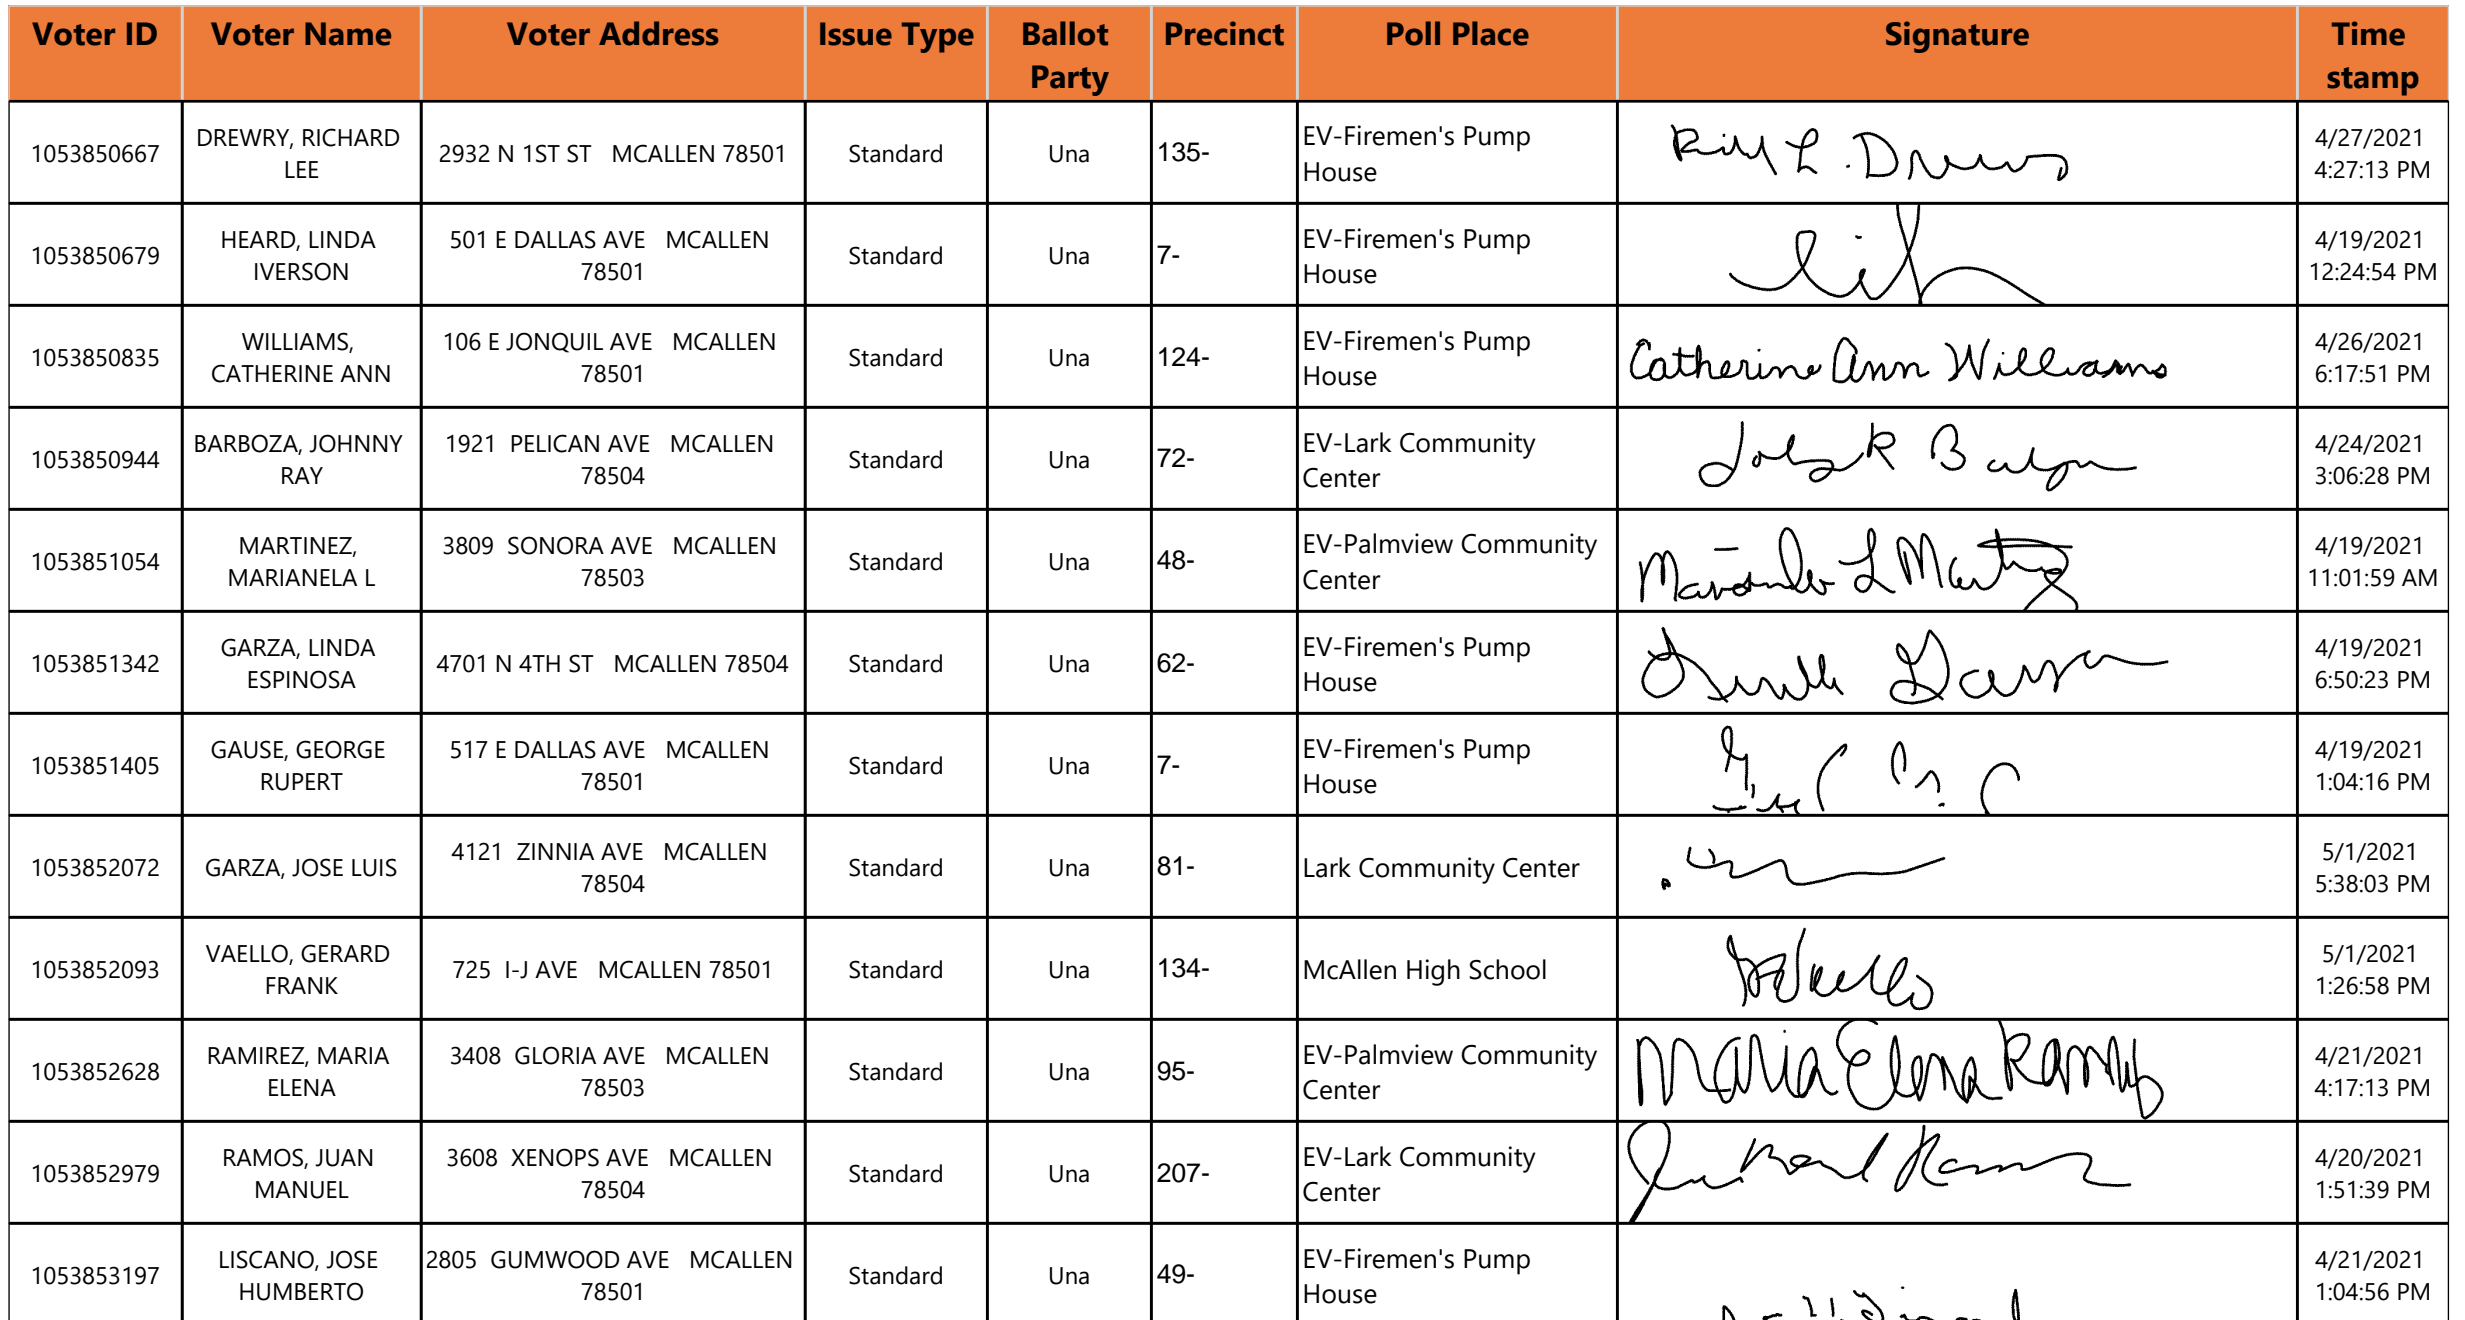 Voter ID Voter Name Voter Address Issue Type Ballot Party Precinct Poll Place Signature Time stamp
1053850667 DREWRY, RICHARD LEE 2932 N 1ST ST MCALLEN 78501 Standard Una 135- EV-Firemen's Pump House 4/27/2021 4:27:13 PM
1053850679 HEARD, LINDA IVERSON 501 E DALLAS AVE MCALLEN 78501 Standard Una 7- EV-Firemen's Pump House 4/19/2021 12:24:54 PM
1053850835 WILLIAMS, CATHERINE ANN 106 E JONQUIL AVE MCALLEN 78501 Standard Una 124- EV-Firemen's Pump House Catherine Ann Williams 4/26/2021 6:17:51 PM
1053850944 BARBOZA, JOHNNY RAY 1921 PELICAN AVE MCALLEN 78504 Standard Una 72- EV-Lark Community Center 4/24/2021 3:06:28 PM
1053851054 MARTINEZ, MARIANELA L 3809 SONORA AVE MCALLEN 78503 Standard Una 48- EV-Palmview Community Center 4/19/2021 11:01:59 AM
1053851342 GARZA, LINDA ESPINOSA 4701 N 4TH ST MCALLEN 78504 Standard Una 62- EV-Firemen's Pump House 4/19/2021 6:50:23 PM
1053851405 GAUSE, GEORGE RUPERT 517 E DALLAS AVE MCALLEN 78501 Standard Una 7- EV-Firemen's Pump House 4/19/2021 1:04:16 PM
1053852072 GARZA, JOSE LUIS 4121 ZINNIA AVE MCALLEN 78504 Standard Una 81- Lark Community Center 5/1/2021 5:38:03 PM
1053852093 VAELLO, GERARD FRANK 725 I-J AVE MCALLEN 78501 Standard Una 134- McAllen High School 5/1/2021 1:26:58 PM
1053852628 RAMIREZ, MARIA ELENA 3408 GLORIA AVE MCALLEN 78503 Standard Una 95- EV-Palmview Community Center Maria Elena 4/21/2021 4:17:13 PM
1053852979 RAMOS, JUAN MANUEL 3608 XENOPS AVE MCALLEN 78504 Standard Una 207- EV-Lark Community Center 4/20/2021 1:51:39 PM
1053853197 LISCANO, JOSE HUMBERTO 2805 GUMWOOD AVE MCALLEN 78501 Standard Una 49- EV-Firemen's Pump House 4/21/2021 1:04:56 PM